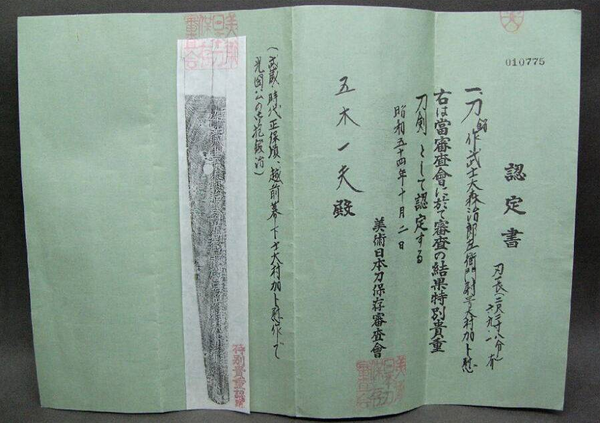 010775
認定書
一、刀 銘 作武士大森治郎左衛門 大村加卜慰
刃長(二尺二寸八分
右は當審査會に於て審査の結果特別貴重
刀剣として認定する
昭和五十四年十月二日
美術日本刀保存審査會
五木一夫殿
(武蔵 時代正保頃、越前幕下士大村加卜慰作で
光圀公の
特別貴重